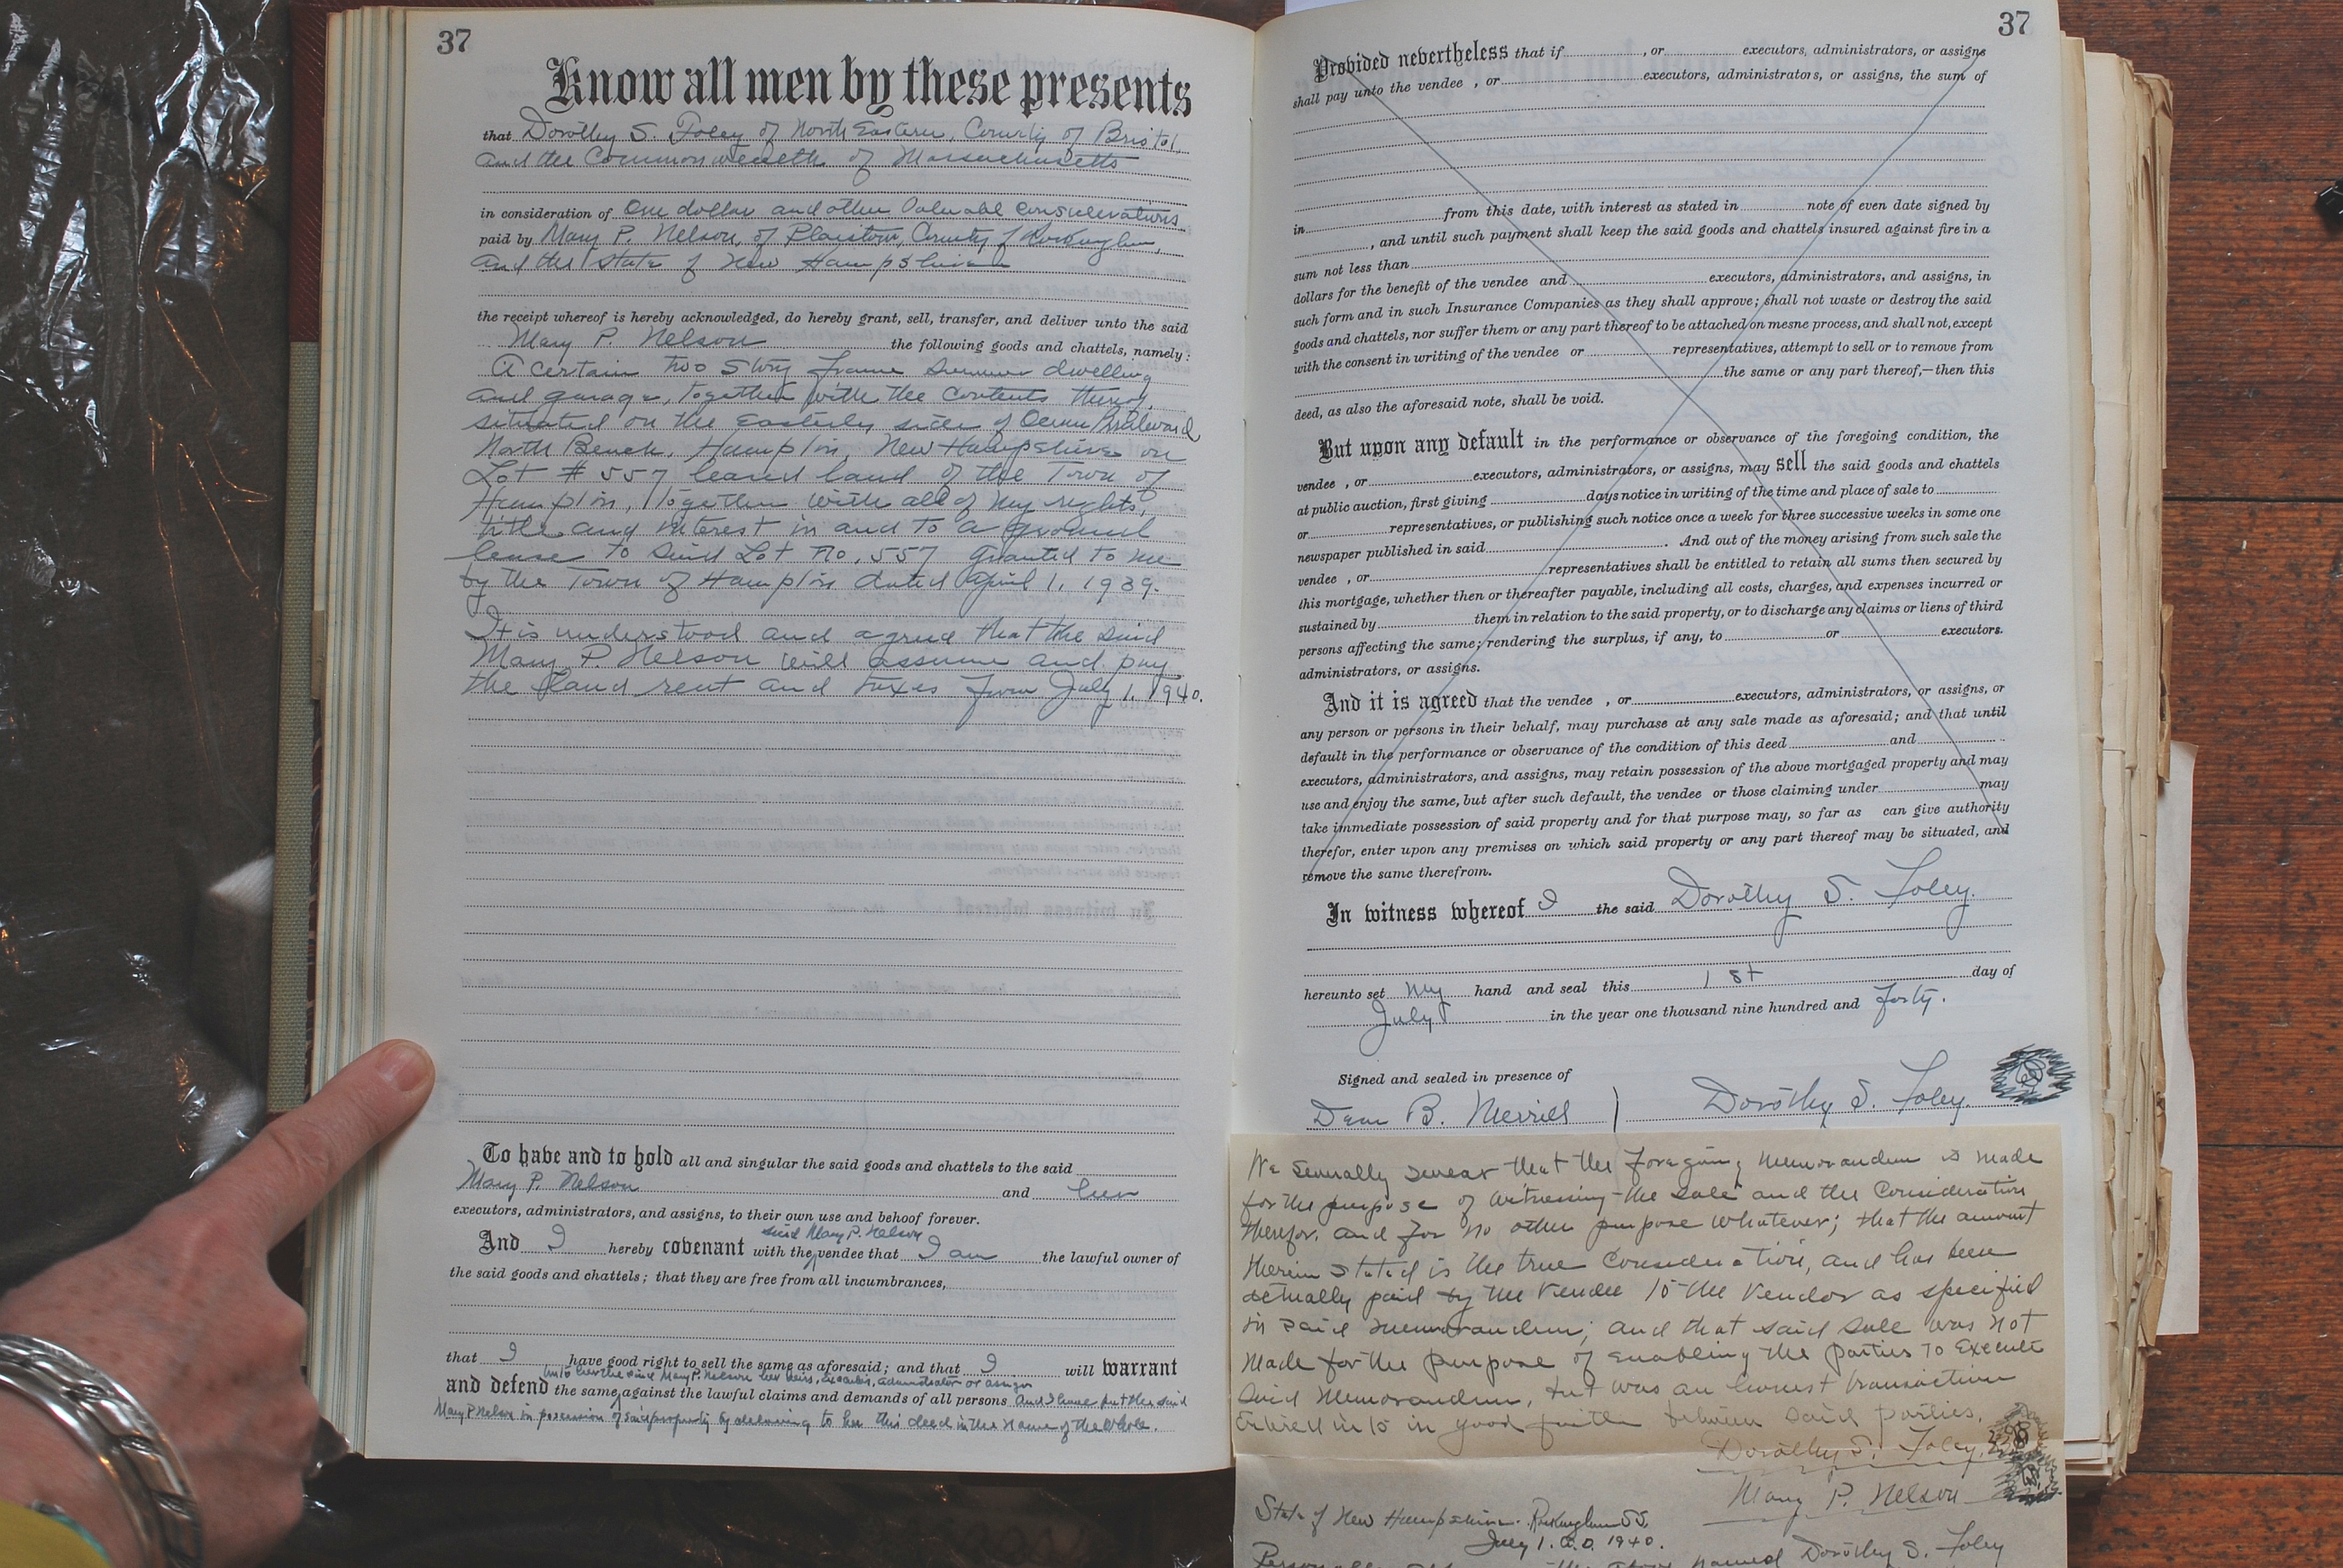 37
Know all men by these presents
that Dorothy S. Foley of North Eastern, County of Bristol,
and the Commonwealth of Massachusetts
in consideration of One dollar and other Valuable considerations
paid by Mary P. Nelson, of Plaistow, County of Rockingham,
and the state of New Hampshire
the receipt whereof is hereby acknowledged, do hereby grant, sell, transfer, and deliver unto the said
Mary P. Nelson the following goods and chattels, namely:
A certain two story frame summer dwelling
and garage, together with the contents thereof,
situated on the Easterly side of Ocean Boulevard
North Beach, Hampton, New Hampshire on
Lot # 557 leased land of the Town of
Hampton, together with all of my rights,
title and interest in and to a ground
lease to said Lot No. 557 granted to me
by the Town of Hampton dated April 1, 1939.
It is understood and agreed that the said
Mary P. Nelson will assume and pay
the land rent and taxes from July 1, 1940.
To have and to hold all and singular the said goods and chattels to the said
Mary P. Nelson and her
executors, administrators, and assigns, to their own use and behoof forever.
said Mary P. Nelson
And I hereby covenant with the vendee that I am the lawful owner of
the said goods and chattels; that they are free from all incumbrances,
that I have good right to sell the same as aforesaid; and that I will warrant
unto her the said Mary P. Nelson her heirs, executors, administrators or assigns
and defend the same against the lawful claims and demands of all persons and I have put the said
Mary P Nelson in possession of said property by delivering to her this deed in the name of the whole.
37
Provided nevertheless that if , or executors, administrators, or assigns
shall pay unto the vendee , or executors, administrators, or assigns, the sum of
from this date, with interest as stated in note of even date signed by
in , and until such payment shall keep the said goods and chattels insured against fire in a
sum not less than
dollars for the benefit of the vendee and executors, administrators, and assigns, in
such form and in such Insurance Companies as they shall approve; shall not waste or destroy the said
goods and chattels, nor suffer them or any part thereof to be attached on mesne process, and shall not, except
with the consent in writing of the vendee or representatives, attempt to sell or to remove from
the same or any part thereof,—then this
deed, as also the aforesaid note, shall be void.
But upon any default in the performance or observance of the foregoing condition, the
vendee , or executors, administrators, or assigns, may sell the said goods and chattels
at public auction, first giving days notice in writing of the time and place of sale to
or representatives, or publishing such notice once a week for three successive weeks in some one
newspaper published in said . And out of the money arising from such sale the
vendee , or representatives shall be entitled to retain all sums then secured by
this mortgage, whether then or thereafter payable, including all costs, charges, and expenses incurred or
sustained by them in relation to the said property, or to discharge any claims or liens of third
persons affecting the same; rendering the surplus, if any, to or executors.
administrators, or assigns.
And it is agreed that the vendee , or executors, administrators, or assigns, or
any person or persons in their behalf, may purchase at any sale made as aforesaid; and that until
default in the performance or observance of the condition of this deed and
executors, administrators, and assigns, may retain possession of the above mortgaged property and may
use and enjoy the same, but after such default, the vendee or those claiming under may
take immediate possession of said property and for that purpose may, so far as can give authority
therefor, enter upon any premises on which said property or any part thereof may be situated, and
remove the same therefrom.
In witness whereof I the said Dorothy S. Foley.
hereunto set my hand and seal this 1st day of
July in the year one thousand nine hundred and forty.
Signed and sealed in presence of
Dean B. Merrill Dorothy S. Foley.
We severally swear that the foregoing memorandum is made
for the purpose of witnessing the sale and the Consideration
therefor, and for no other purpose whatever; that the amount
therein stated is the true Consideration, and has been
actually paid by the Vendee to the Vendor as specified
in said memorandum; and that said sale was not
made for the purpose of enabling the parties to execute
said Memorandum, but was an honest transaction
entered into in good faith between said parties.
Dorothy S. Foley
Mary P. Nelson
State of New Hampshire. Rockingham SS.
July 1. A.D. 1940.
named Dorothy S. Foley